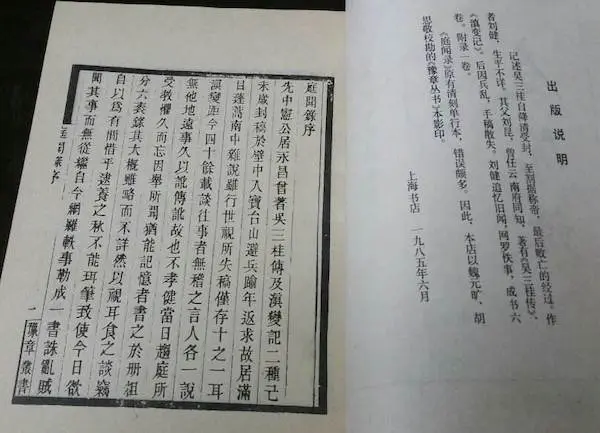 出版说明
记述吴三桂自降清受封，至割据称帝，最后败亡的经过。作
者刘健，生平不详。其父刘昆，曾任云南府同知，著有《吴三桂传》、
《滇变记》，后因兵乱，手稿散失。刘健追忆旧闻，网罗佚事，成书六
卷。附录一卷。
《庭闻录》原有清刻单行本，错误颇多。因此，本店以魏元旷、胡
思敬校勘的《豫章丛书》本影印。
上海书店 一九八五年六月
庭聞錄序
先中憲公居永昌嘗著吳三桂傳及滇變記二種己
未歲封稿於壁中入寶台山避兵踰年返求故居滿
目蓬蒿南中雜說雖行世視所失稿僅存十之一耳
滇變距今四十餘載談往事者無稽之言人各一說
無他地遠事久以訛傳訛故也不孝健當日趨庭所
受教懼久而忘因舉所聞猶能記憶者書之於册
分六表錄其大概雖略而不詳然以視耳食之談竊
自以爲有間惜乎逮養之秋不能珥筆致使今日欲
聞其事而無從自今網羅軼事勒成一書誅亂賊
庭聞錄序
一 豫章叢書